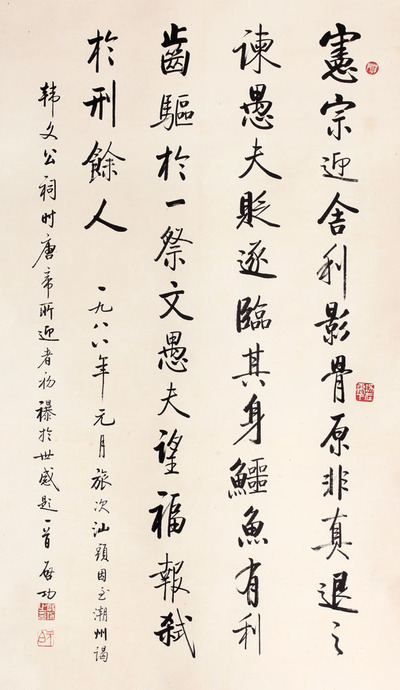 憲宗迎舍利影骨原非真退之
諫愚夫貶逐臨其身鱷魚有利
齒驅於一祭文愚夫望福報弑
於刑餘人
一九八八年元月旅次汕頭因至潮州謁
韩文公祠时唐帝所迎者初襮於世感題一首 啓功